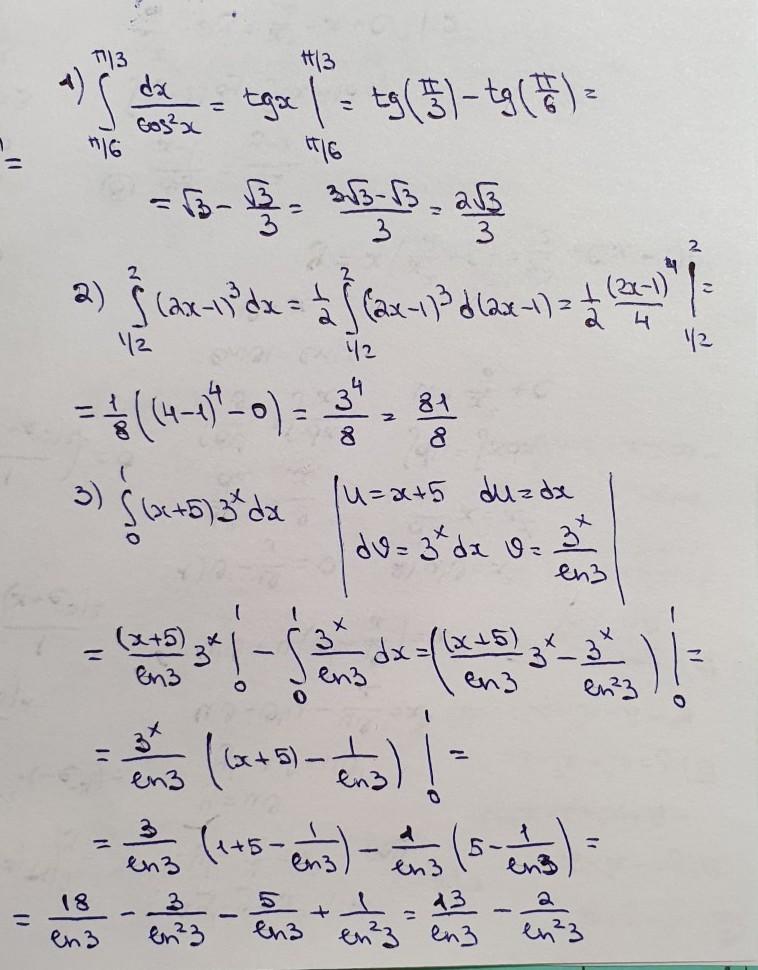 1) ∫_{π/6}^{π/3} dx/cos²x = tgx |_{π/6}^{π/3} = tg(π/3) − tg(π/6) =
= √3 − √3/3 = (3√3−√3)/3 = 2√3/3
2) ∫_{1/2}^{2} (2x−1)³dx = 1/2 ∫_{1/2}^{2} (2x−1)³ d(2x−1) = 1/2 (2x−1)⁴/4 |_{1/2}^{2} =
= 1/8 ((4−1)⁴ − 0) = 3⁴/8 = 81/8
3) ∫_{0}^{1} (x+5) 3ˣ dx | u = x+5 du = dx
dϑ = 3ˣ dx ϑ = 3ˣ/ln3 |
= (x+5)/ln3 3ˣ |_{0}^{1} − ∫_{0}^{1} 3ˣ/ln3 dx = ((x+5)/ln3 3ˣ − 3ˣ/ln²3) |_{0}^{1} =
= 3ˣ/ln3 ((x+5) − 1/ln3) |_{0}^{1} =
= 3/ln3 (1+5 − 1/ln3) − 1/ln3 (5 − 1/ln3) =
= 18/ln3 − 3/ln²3 − 5/ln3 + 1/ln²3 = 13/ln3 − 2/ln²3